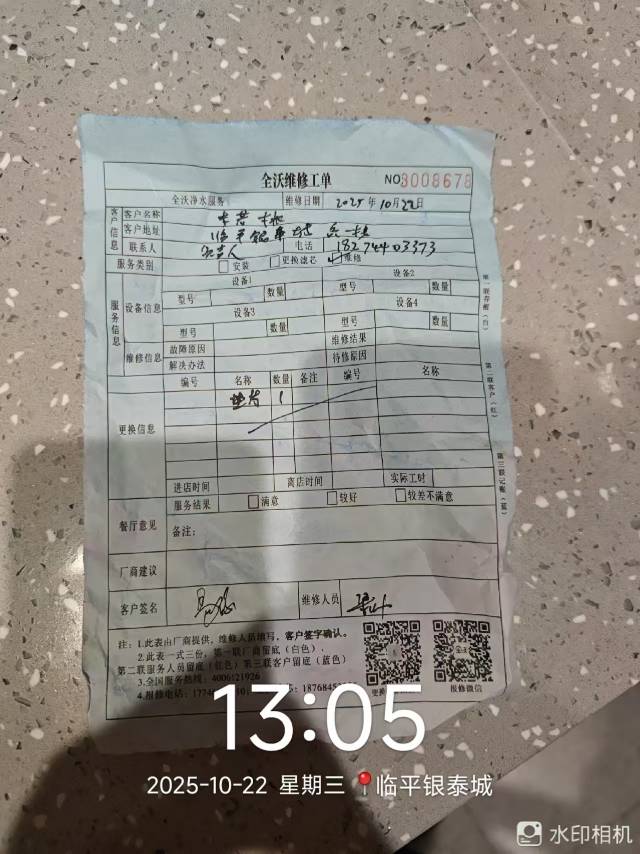 全沃维修工单 NO3008678
全沃净水服务 维修日期 2025年10月22日
客户信息 客户名称
客户地址 临平银泰城
联系人 电话 18274403373
服务类别 安装 更换滤芯 ✓维修
服务信息 设备信息 设备1 设备2
型号 数量 型号 数量
设备3 设备4
型号 数量 型号 数量
维修信息 故障原因 维修结果
解决办法 待修原因
更换信息 编号 名称 数量 备注 编号 名称
垫片 1
进店时间 离店时间 实际工时
服务结果 满意 较好 较差不满意
餐厅意见 备注:
厂商建议
客户签名 维修人员
注:1.此表由厂商提供,维修人员填写,客户签字确认。
2.此表一式三份,第一联厂商留底(白色)
第二联服务人员留底(红色)第三联客户留底(蓝色)
3.全国服务热线:4006121926
4.报修电话:
报修微信
第一联存根(白)
第二联客户(红)
13:05
2025-10-22 星期三 临平银泰城
水印相机